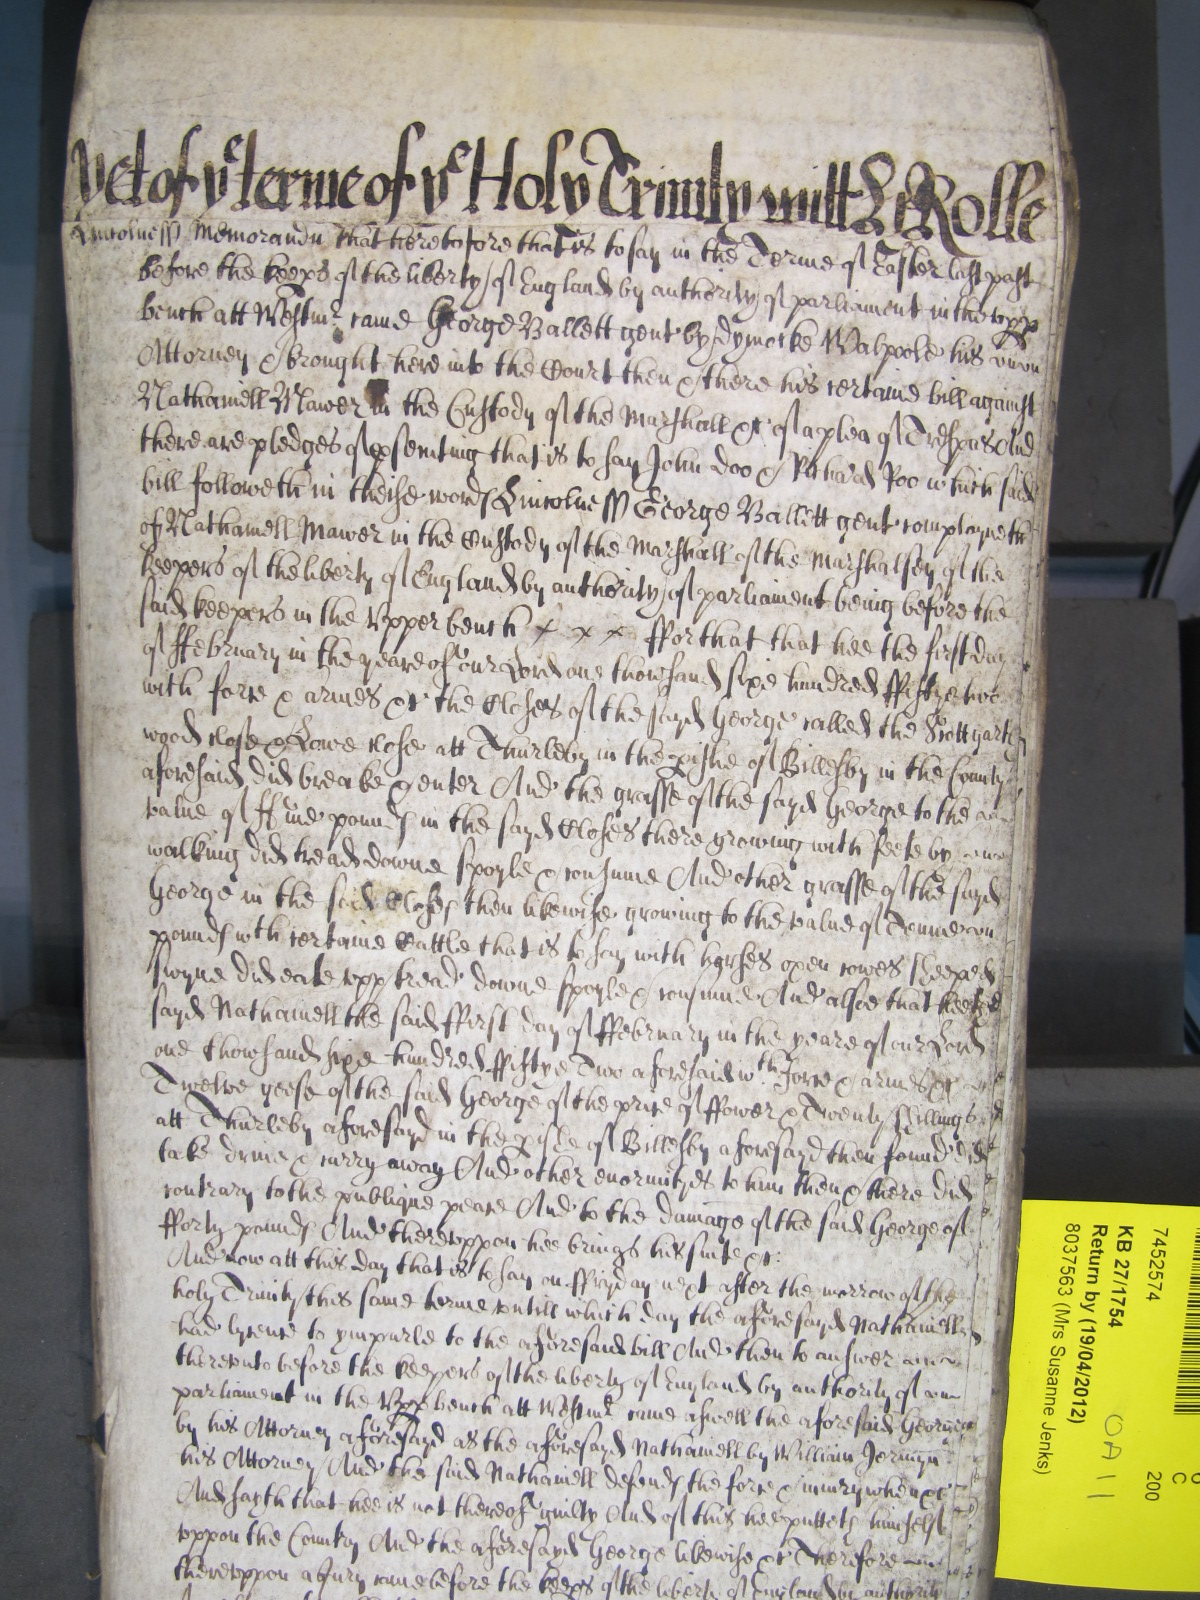 Yet of ye terme of ye Holy Trinity Rolle
Lincolness Memorandu That heretofore that is to say in the Terme of Easter last past
before the keeps of the liberty of England by authority of parliament in the upp
bench att Westmr came George Ballett gent by Dymocke Walpole his
Attorney & brought here into the Court then & there his certaine bill against
Nathaniell Mawer in the Custody of the Marshall &c of a plea of Trespas And
there are pledges of psenting that is to say John Doo & Richard Roo which said
bill followeth in theise words Lincolness George Ballett gent complayneth
of Nathaniell Mawer in the Custody of the Marshall of the Marshalsey of the
keepers of the liberty of England by authority of parliament being before the
said keepers in the Upper bench x x x ffor that that hee the first day
of ffebruary in the yeare of our Lord one thowsand sixe hundred ffiftye two
with force & armes &c the Closes of the sayd George called the
wood close & Lowe close att Thurleby in the pishe of Billesby in the County
aforesaid did breake & enter And the grasse of the sayd George to the
value of ffive pounds in the sayd Closes there growing with feete by
walking did tread downe spoyle & consume And other grasse of the sayd
George in the said Closes then likewise growing to the value of Tenne
pounds wth certaine Cattle that is to say with horses oxen cowes sheepe &
swyne did eate upp tread downe spoyle & consume And alsoe that hee the
sayd Nathaniell the said ffirst day of ffebruary in the yeare of our Lord
one thowsand sixe hundred ffiftye Two aforesaid wth force & armes &c
Twelve geese of the said George of the price of ffower & Twenty shillings
att Thurleby aforesayd in the pishe of Billesby aforesayd then found did
take drive & carry away And other enormityes to him then & there did
contrary to the publique peace And to the damage of the said George of
fforty pounds And thereuppon hee brings his suite &c:
And now att this day that is to say on ffryday next after the morrow of the
holy Trinity this same terme untill which day the aforesayd Nathaniell
had lycence to ymparle to the aforesaid bill And then to answer
thereunto before the keepers of the liberty of England by authority of
parliament in the Upp bench att Westmr came aswell the aforesaid George
by his Attorney aforesayd as the aforesayd Nathaniell by William Jermyn
his Attorney And the said Nathaniell defends the force & iniury when &c
And sayth that hee is not thereof guilty And of this hee putteth himself
uppon the Country And the aforesayd George likewise &c Therefore
thereuppon a Jury came before the keeps of the liberty of England by authority
7452574
200
C
KB 27/1754
Return by (19/04/2012)
8037563 (Mrs Susanne Jenks)